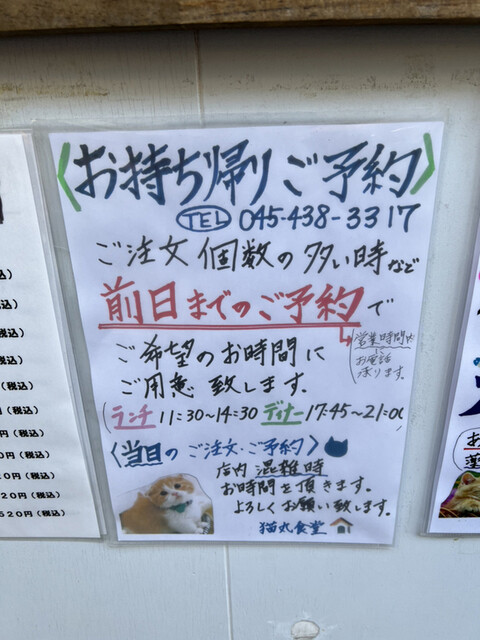 〈お持ち帰り ご予約〉
TEL 045-438-3317
ご注文 個数の多い時など
前日までのご予約で
営業時間内に
お電話
承ります。
ご希望のお時間に
ご用意 致します。
(ランチ 11:30~14:30 ディナー 17:45~21:00
〈当日の ご注文・ご予約〉
店内 混雑時
お時間を頂きます。
よろしくお願い致します。
猫丸食堂
込)
込)
込)
税込)
(税込)
(税込)
円(税込)
円(税込)
0円(税込)
20円(税込)
520円(税込)